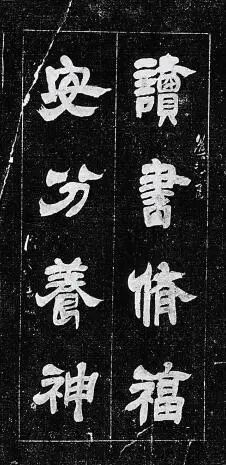 讀書脩福
安分養神